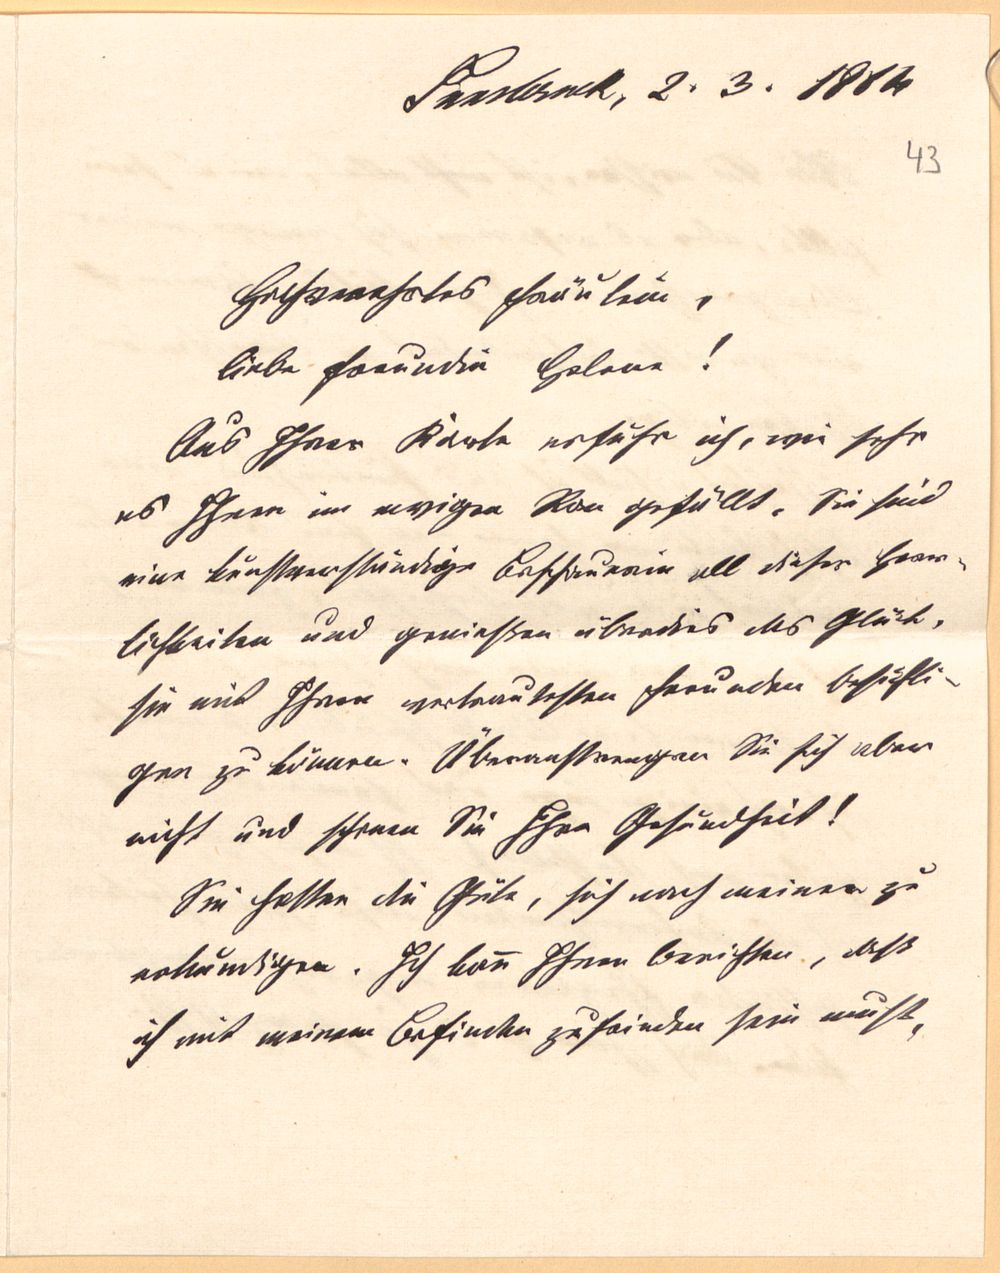 Innsbruck, 2. 3. 1914
43
Hochverehrtes Fräulein,
liebe Freundin Helene!
Aus Ihrer Karte erfuhr ich, wie sehr
es Ihnen im ewigen Rom gefällt. Sie sind
eine kunstverständige Beschauerin all dieser Herr-
lichkeiten und genießen überdies das Glück,
sie mit Ihren vertrautesten Freunden besichti-
gen zu können. Überanstrengen Sie sich aber
nicht und schonen Sie Ihre Gesundheit!
Sie hatten die Güte, sich nach meiner zu
erkundigen. Ich kann Ihnen berichten, daß
ich mit meinem Befinden zufrieden sein muß,